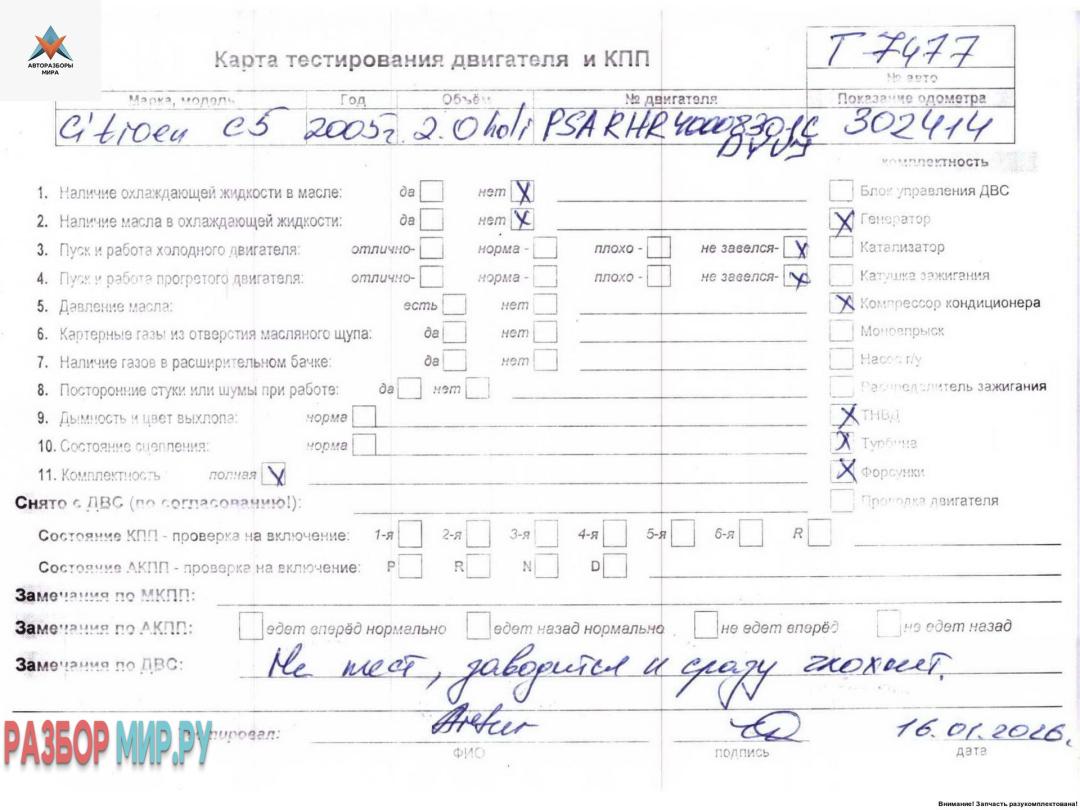 АВТОРАЗБОРЫ
МИРА
Карта тестирования двигателя и КПП
Т 7477
№ авто
Марка, модель Год Объём № двигателя Показание одометра
Citroen C5 2005г. 2.0 hdi PSARHR 302414
комплектность
1. Наличие охлаждающей жидкости в масле: да нет X Блок управления ДВС
2. Наличие масла в охлаждающей жидкости: да нет X X Генератор
3. Пуск и работа холодного двигателя: отлично- норма - плохо - не завелся- X Катализатор
4. Пуск и работа прогретого двигателя: отлично- норма - плохо - не завелся- X Катушка зажигания
5. Давление масла: есть нет X Компрессор кондиционера
6. Картерные газы из отверстия масляного щупа: да нет Моновпрыск
7. Наличие газов в расширительном бачке: да нет Насос г/у
8. Посторонние стуки или шумы при работе: да нет Распределитель зажигания
9. Дымность и цвет выхлопа: норма X ТНВД
10. Состояние сцепления: норма X Турбина
11. Комплектность полная X X Форсунки
Снято с ДВС (по согласованию!): Проводка двигателя
Состояние КПП - проверка на включение: 1-я 2-я 3-я 4-я 5-я 6-я R
Состояние АКПП - проверка на включение: P R N D
Замечания по МКПП:
Замечания по АКПП: едет вперёд нормально едет назад нормально не едет вперёд не едет назад
Замечания по ДВС: Не тест, заводится и сразу глохнет.
РАЗБОР МИР.РУ
Artur 16.01.2026.
ФИО подпись дата
Внимание! Запчасть разукомплектована!